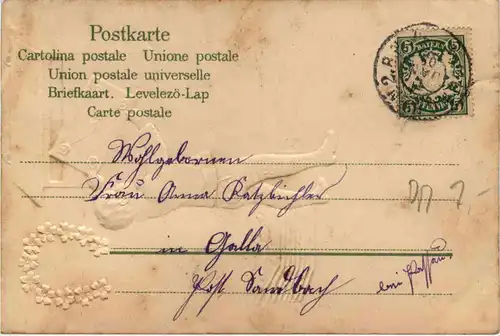 Postkarte
Cartolina postale Unione postale
Union postale universelle
Briefkaart. Levelezö-Lap
Carte postale
5 BAYERN 5
5 5
Wohlgebornen
Frau Anna Katzbichler
in Galla
Post Sandbach
bei Passau